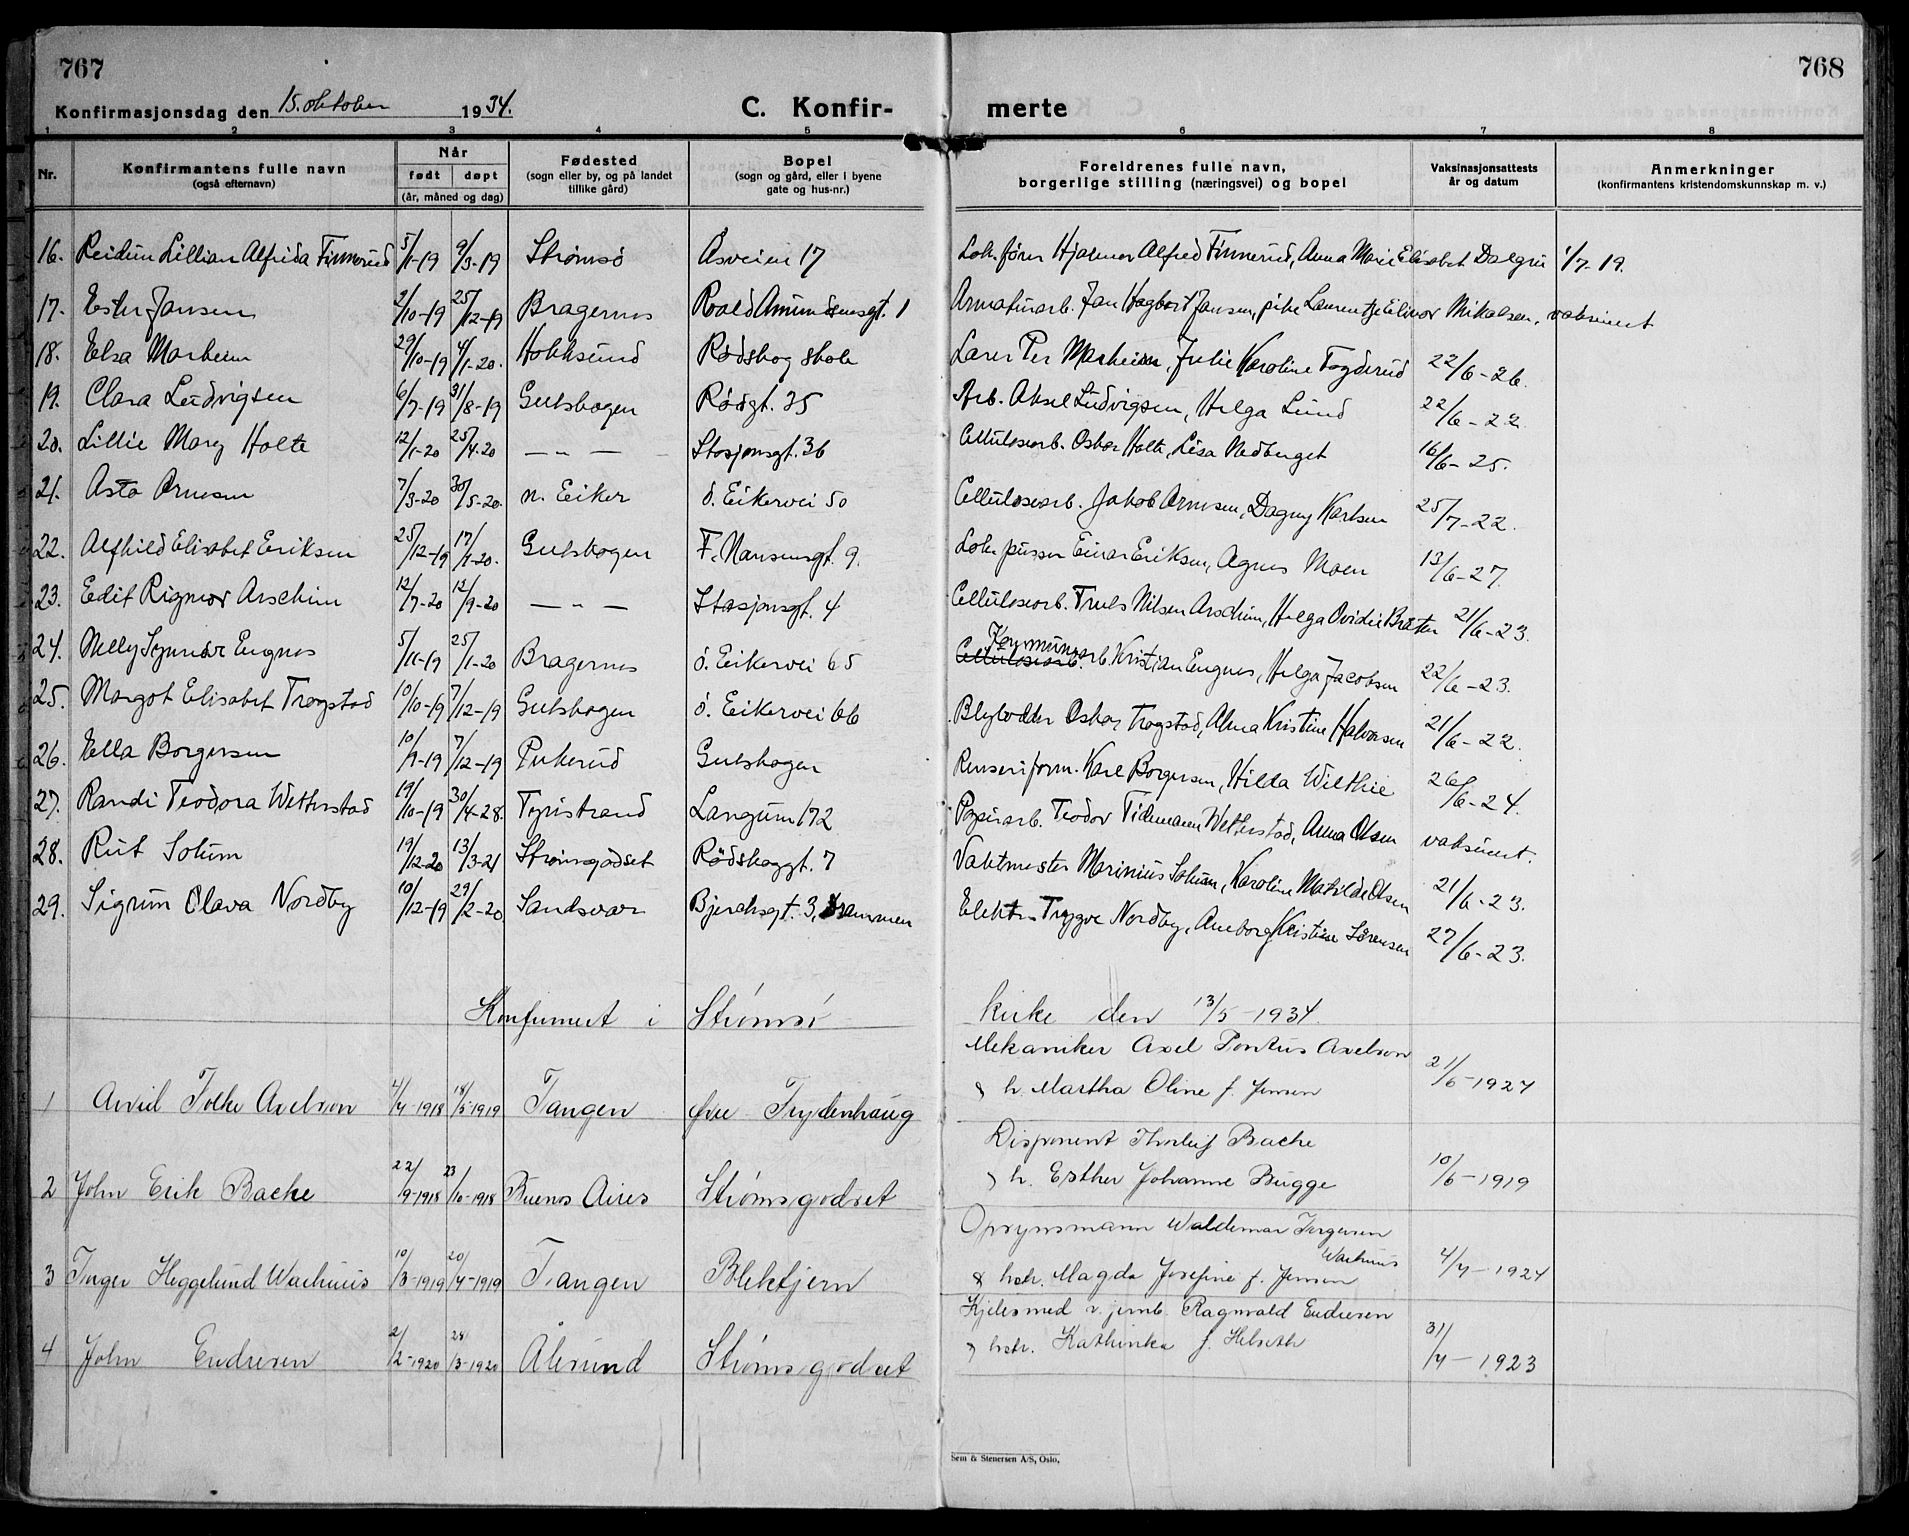 767
768
Konfirmasjonsdag den 15. oktober 1934.
C. Konfir-
merte
1 2 3 4 5 6 7 8
Nr. Konfirmantens fulle navn (også efternavn) Når født døpt (år, måned og dag) Fødested (sogn eller by, og på landet tillike gård) Bopel (sogn og gård, eller i byene gate og hus-nr.) Foreldrenes fulle navn, borgerlige stilling (næringsvei) og bopel Vaksinasjonsattests år og datum Anmerkninger (konfirmantens kristendomskunnskap m. v.)
16. Reidun Lillian Alfrida Finnerud 5/1-19 9/3-19 Strømsø Åsveien 17 Lok.fører Hjalmar Alfred Finnerud, Anna Marie Elisabet Dalgru 1/7-19.
17. Ester Jansen 2/10-19 25/12-19 Bragernes Roald Amundsensgt. 1 Armaturarb. Jan Hagbart Jansen, pike Laurentze Elinor Mikalsen, vaksinert
18. Elsa Marheim 29/10-19 4/1-20. Hokksund Rødskog skole Lærer Per Marheim, Julie Karoline Fogderud 22/6-26.
19. Clara Ludvigsen 6/7-19 31/8-19 Gulskogen Rødgt. 35 Arb. Aksel Ludvigsen, Helga Lund 22/6-22.
20. Lillie Mary Holte 12/1-20 25/4-20 — " — Stasjonsgt. 36 Celluloseorb. Oskar Holte, Lisa Nedberget 16/6-25.
21. Asta Arnesen 7/3-20 30/5-20. n. Eiker ö. Eikervei 50 Celluloseorb. Jakob Arnesen, Dagny Karlsen 25/7-22.
22. Alfhild Elisabet Eriksen 25/12-19 17/1-20. Gulskogen F. Nansensgt. 9. Lok.pusser Einar Eriksen, Agnes Moen 13/6-27.
23. Edit Rigmor Arscheim 12/7-20 12/9-20 — " — Stasjonsgt. 4 Celluloseorb. Truls Nilsen Arscheim, Helga Ovidie Bråten 21/6-23.
24. Nelly Synnøve Engnes 5/11-19 25/1-20 Bragernes ö. Eikervei 65 Celluloseorb. Kommunearb. Kristian Engnes, Helga Jacobsen 22/6-23.
25. Margot Elisabet Trogstad 10/10-19 7/12-19 Gulskogen ö. Eikervei 66 Blylodder Oskar Trogstad, Alma Kristine Halvorsen 21/6-22.
26. Ella Borgersen 10/9-19 7/12-19 Pukerud Gulskogen Renseriform. Karl Borgersen, Hilda Wilthie 26/6-24.
27. Randi Teodora Wetterstad 19/10-19 30/4-28. Tyristrand Langum 172 Papirarb. Teodor Tidemann Wetterstad, Anna Olsen vaksinert.
28. Rut Solum 19/12-20 13/3-21 Strømsgodset Rödskoggt. 7 Vaktmester Marinius Solum, Karoline Matilde Olsen 21/6-23.
29. Sigrun Olava Nordby 10/12-19 29/2-20 Sandsvær Bjerchsgt. 3, Drammen Elektr. Trygve Nordby, Aneborg Kristine Sörensen 27/6-23.
Konfirmert i Strømsø kirke den 13/5-1934.
1 Arvid Folke Axelsson 4/4-1918 18/5-1919 Tangen Øvre Frydenhaug Mekaniker Axel Pontus Axelsson & h. Martha Oline f. Jensen 21/6-1924
2 John Erik Bache 22/9-1918 23/10-1918 Buenos Aires Strømsgodset Disponent Thorleif Bache & h. Esther Johanne Bugge 10/6-1919
3 Inger Heggelund Warhuus 10/3-1919 20/4-1919 Tangen Blektjern Opsynsmann Waldemar Jørgensen Warhuus & hstr. Magda Josefine f. Jensen 4/4-1924
4 John Endresen 2/2-1920 28/3-1920 Ålesund Strømsgodset Kjelesmed v. jernb. Ragnvald Endresen & hstr. Kathinka f. Helseth 31/4-1923
Sem & Stenersen A/S, Oslo,